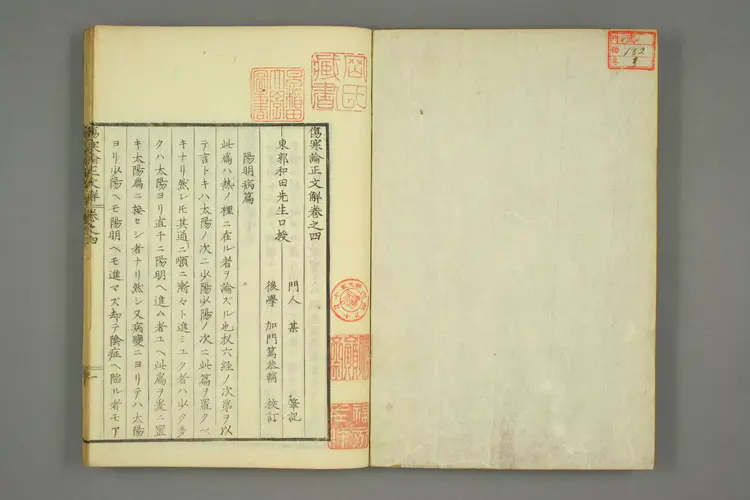 傷寒論正文解卷之四
東郭和田先生口授
門人 某 筆記
後學 加門篤恭輯 挍訂
陽明病篇
此篇ハ熱ノ裡ニ在ル者ヲ論ズル也扨六經ノ次第ヲ以
テ言トキハ太陽ノ次ニ少陽少陽ノ次ニ此篇ヲ置クベ
キナリ然レ𪜈其通ニ順ニ漸々ト進ミユク者ハ少ク多
クハ太陽ヨリ直チニ陽明ヘ進ム者ユヘ此篇ヲ爰ニ置
キ太陽篇ニ接セシ者ナリ然シ又病變ニヨリテハ太陽
ヨリ少陽ヘモ陽明ヘモ進マズ却テ陰症ヘ陷ル者モア
傷寒論正文解 卷之四
岡氏
藏書
182